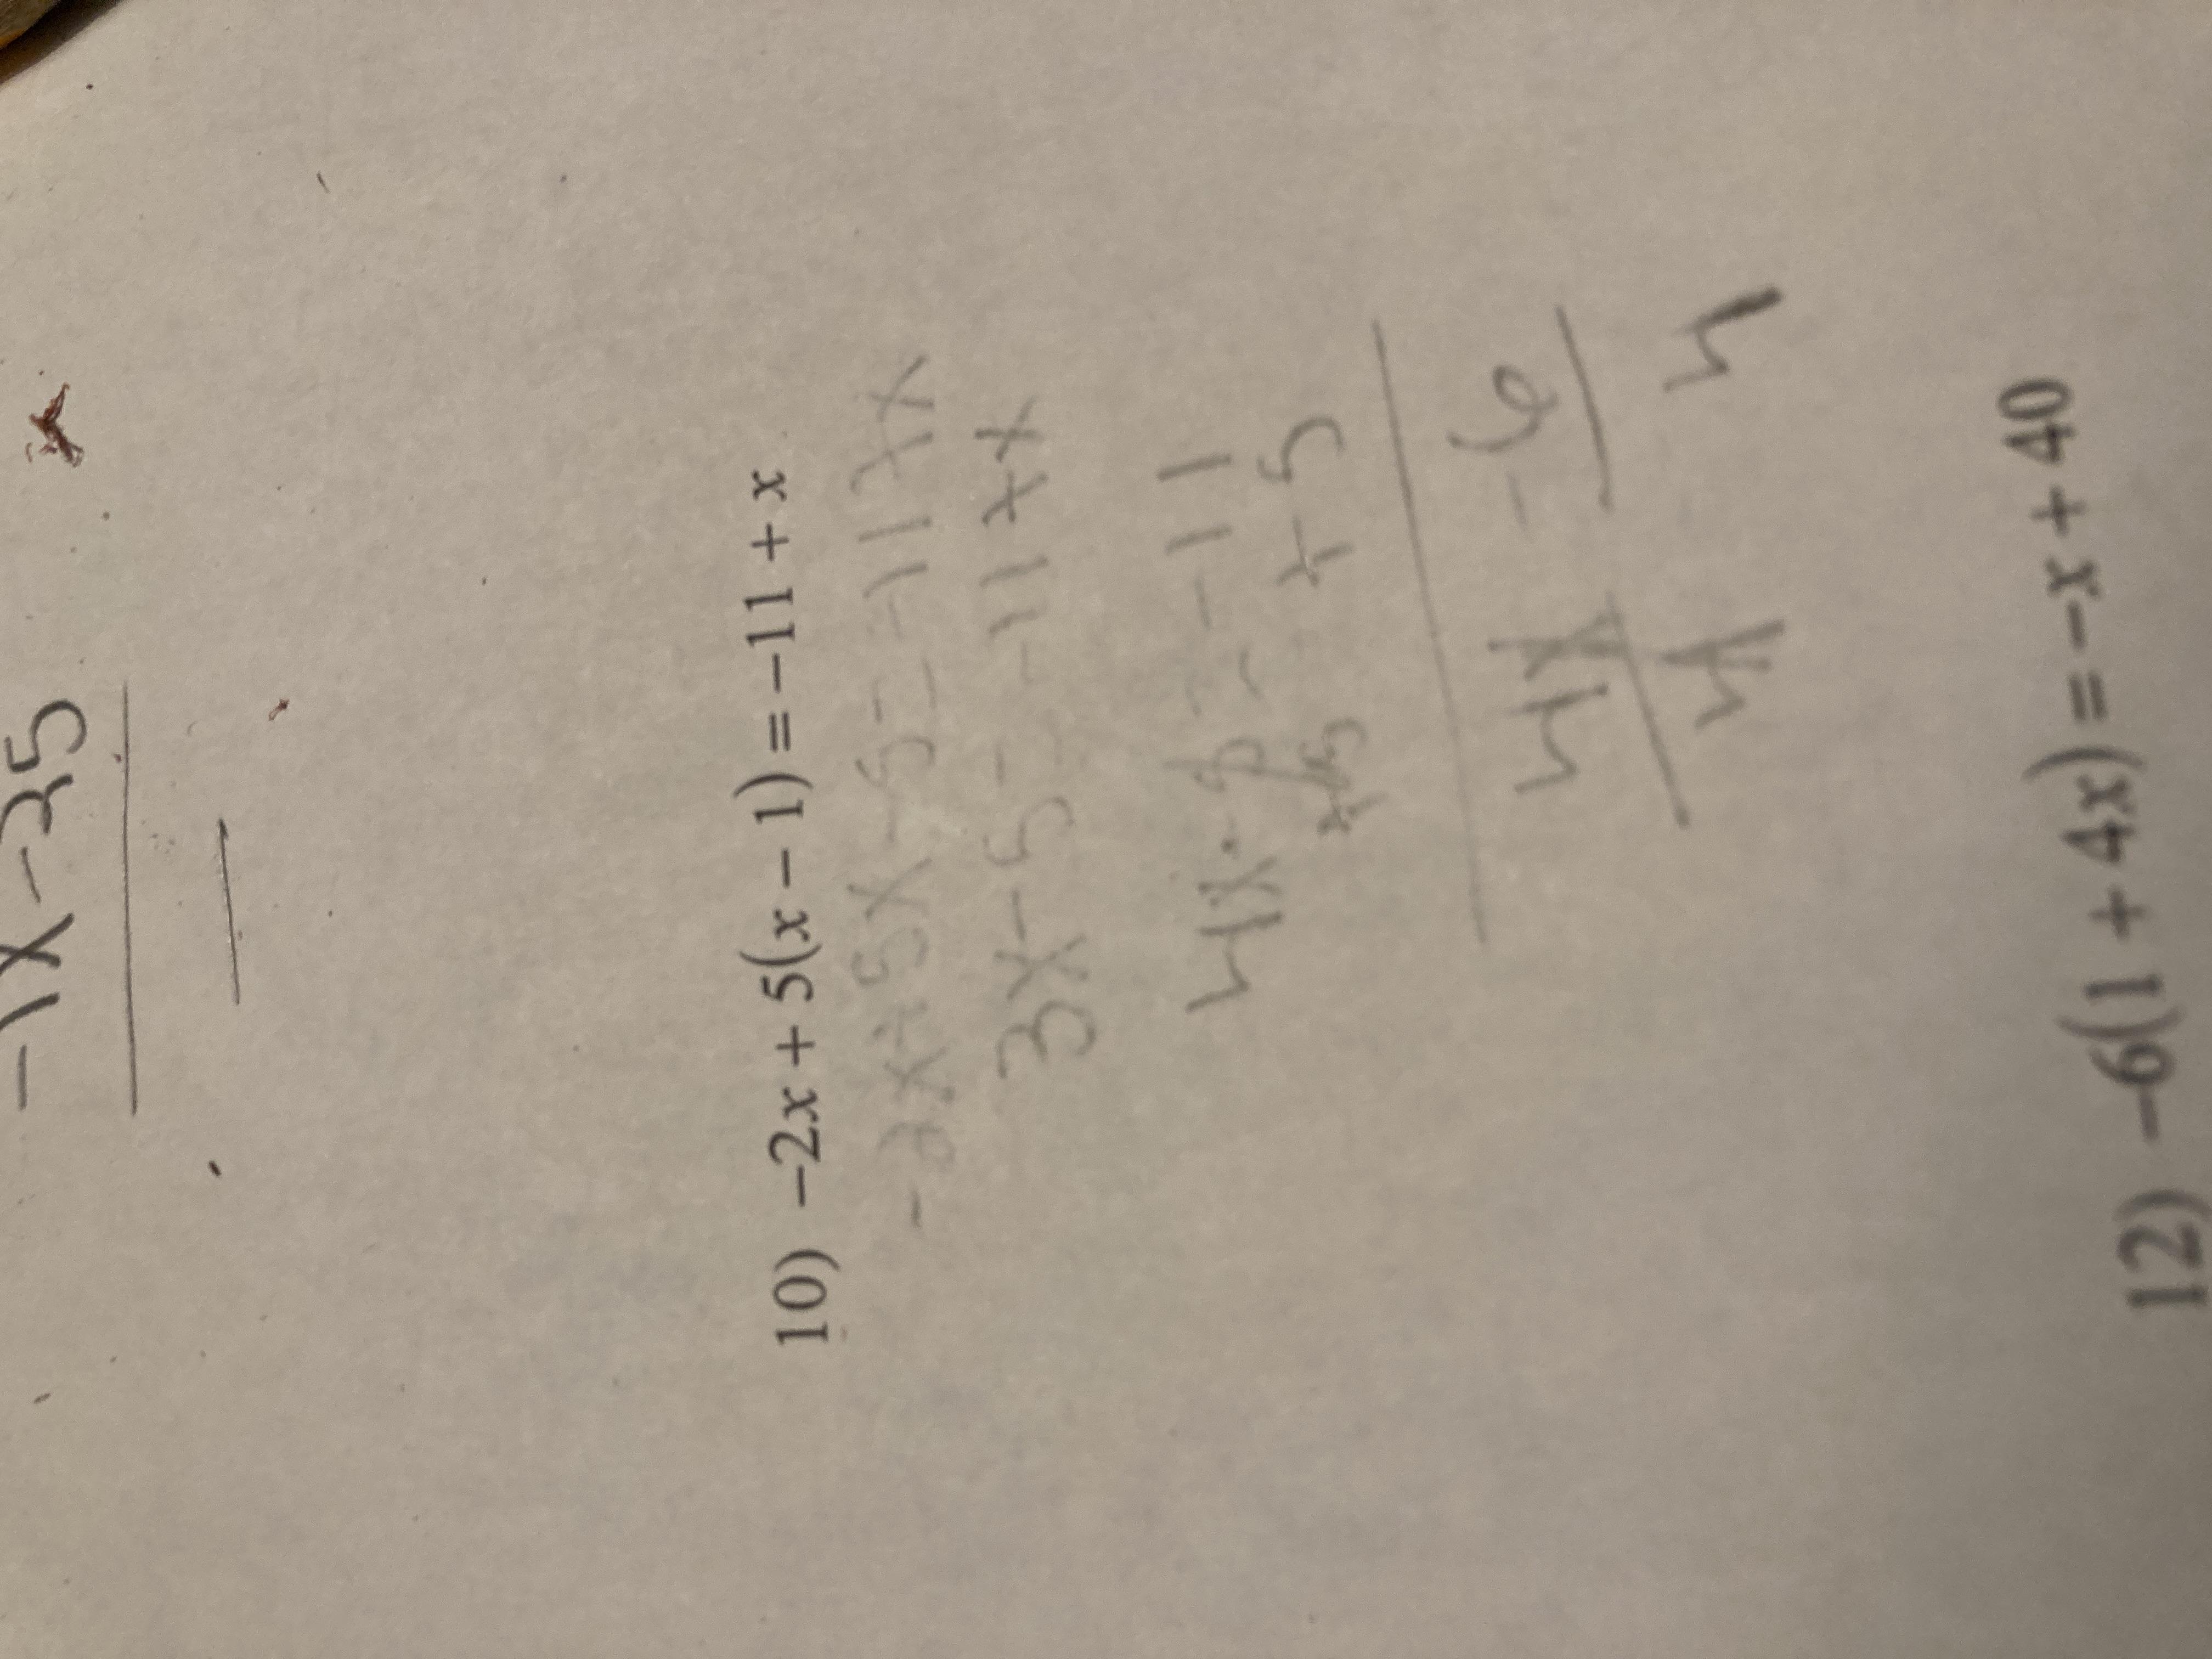 -1x-35
10) -2x + 5(x - 1) = -11 + x
-2x+5x-5=-11+x
3x-5=-11+x
4x-5=-11
+5 +5
4x -6
4 4
12) -6(1 + 4x) = -x + 40